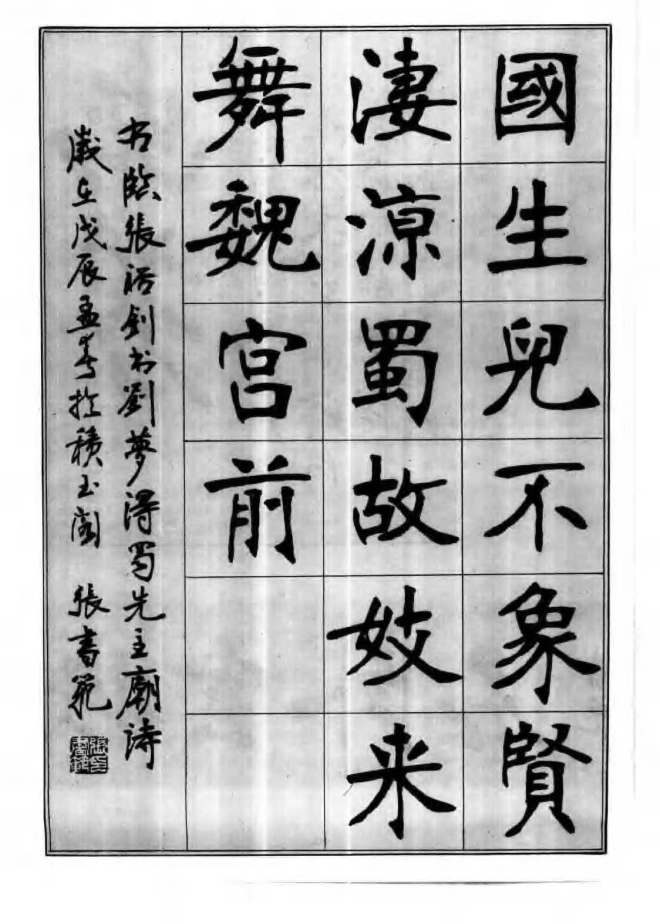 國生兒不象賢
淒涼蜀故妓来
舞魏宮前
书臨張裕釗书劉夢得蜀先主廟詩
歲在戊辰孟春於積玉閣 張書範